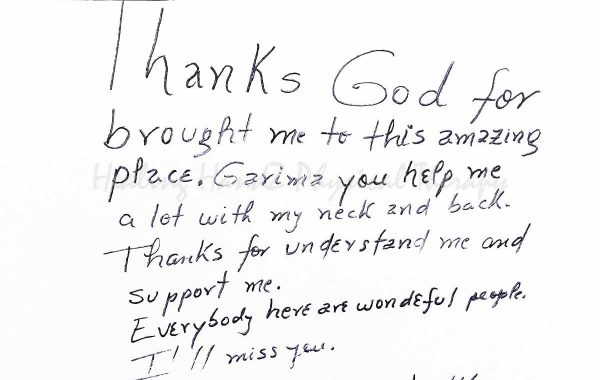 Thanks God for
brought me to this amazing
place. Garima you help me
Healing Hands Physical Therapy
a lot with my neck and back.
Thanks for understand me and
support me.
Everybody here are wondeful people.
I'll miss you.